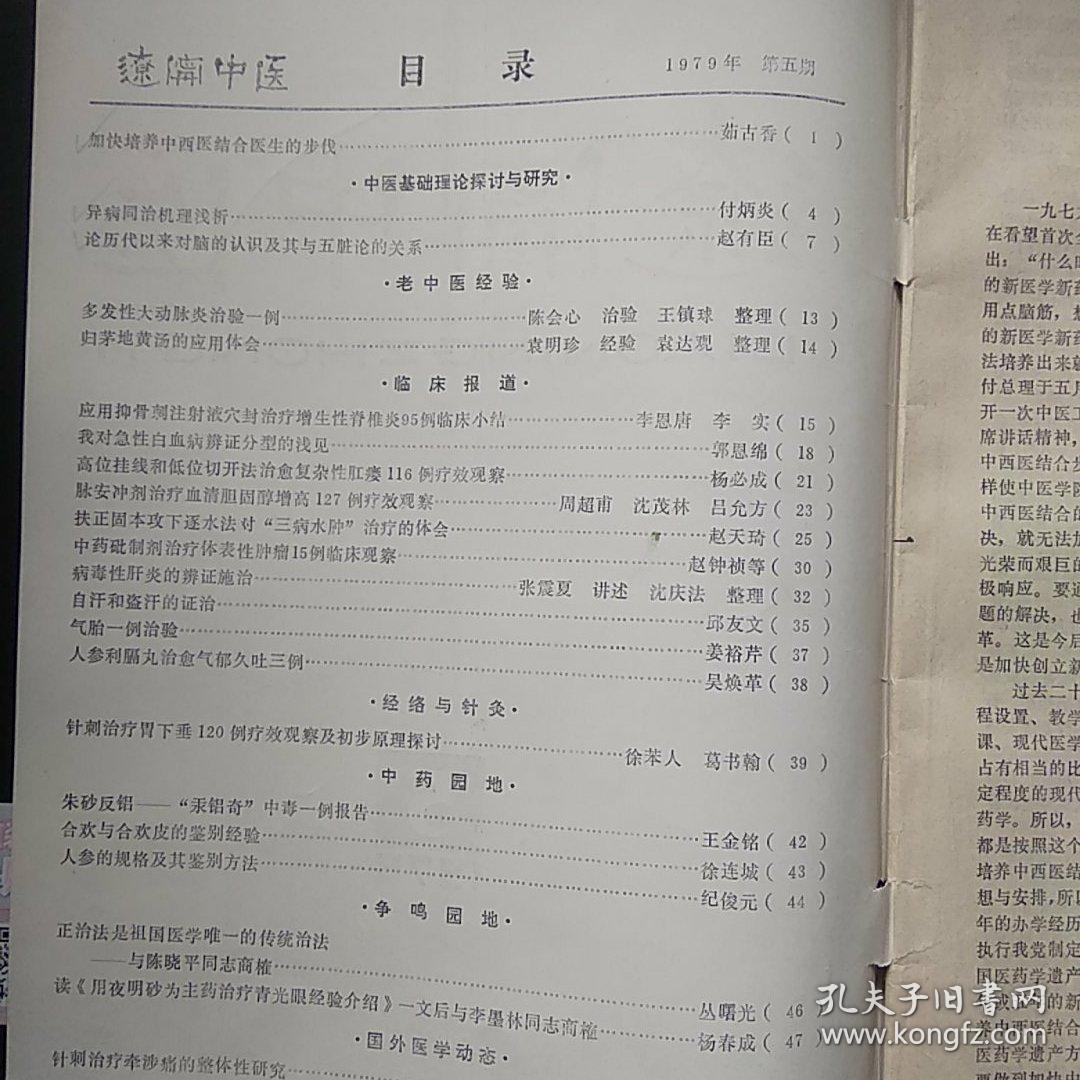 辽宁中医 目录 1979年 第五期
加快培养中西医结合医生的步伐……茹古香( 1 )
·中医基础理论探讨与研究·
异病同治机理浅析……付炳炎( 4 )
论历代以来对脑的认识及其与五脏论的关系……赵有臣( 7 )
·老中医经验·
多发性大动脉炎治验一例……陈会心 治验 王镇球 整理( 13 )
归茅地黄汤的应用体会……袁明珍 经验 袁达观 整理( 14 )
·临床报道·
应用抑骨刺注射液穴封治疗增生性脊椎炎95例临床小结……李恩唐 李 实( 15 )
我对急性白血病辨证分型的浅见……郭恩绵( 18 )
高位挂线和低位切开法治愈复杂性肛瘘116例疗效观察……杨必成( 21 )
脉安冲剂治疗血清胆固醇增高127例疗效观察……周超甫 沈茂林 吕允方( 23 )
扶正固本攻下逐水法对“三病水肿”治疗的体会……赵天琦( 25 )
中药砒制剂治疗体表性肿瘤15例临床观察……赵钟祯等( 30 )
病毒性肝炎的辨证施治……张震夏 讲述 沈庆法 整理( 32 )
自汗和盗汗的证治……邱友文( 35 )
气胎一例治验……姜裕芹( 37 )
人参利膈丸治愈气郁久吐三例……吴焕革( 38 )
·经络与针灸·
针刺治疗胃下垂120例疗效观察及初步原理探讨……徐苯人 葛书翰( 39 )
·中药园地·
朱砂反铝——“汞铝奇”中毒一例报告……王金铭( 42 )
合欢与合欢皮的鉴别经验……徐连城( 43 )
人参的规格及其鉴别方法……纪俊元( 44 )
·争鸣园地·
正治法是祖国医学唯一的传统治法
——与陈晓平同志商榷……丛曙光( 46 )
读《用夜明砂为主药治疗青光眼经验介绍》一文后与李墨林同志商榷……杨春成( 47 )
·国外医学动态·
针刺治疗牵涉痛的整体性研究……
一九七
在看望首次全
出：“什么叫
的新医学新药
用点脑筋，想
的新医学新药
法培养出来就
付总理于五月
开一次中医工
席讲话精神，
中西医结合步
样使中医学院
中西医结合的
决，就无法加
光荣而艰巨的
极响应。要通
题的解决，也
革。这是今后
是加快创立新
过去二十
程设置、教学
课、现代医学
占有相当的比
定程度的现代
药学。所以，
都是按照这个
培养中西医结
想与安排，所以
年的办学经历
执行我党制定
国医药学遗产
的新
养中西医结合
医药学遗产方
要做到加快中
孔夫子旧书网
www.kongfz.com